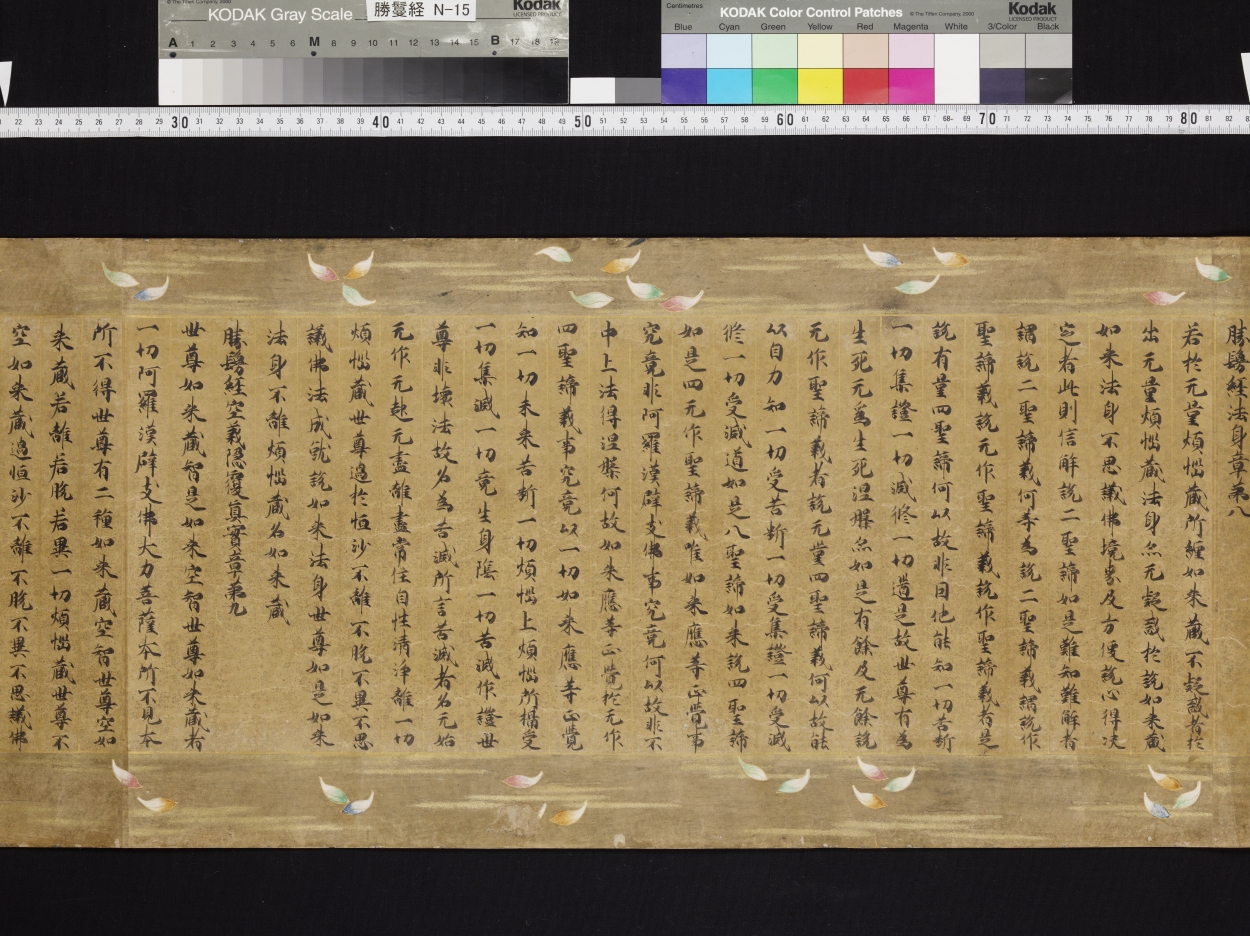 © The Tiffen Company, 2000
KODAK Gray Scale
勝鬘経 N-15
Kodak
LICENSED PRODUCT
A 1 2 3 4 5 6 M 8 9 10 11 12 13 14 15 B 17 18 19
Centimetres
KODAK Color Control Patches
© The Tiffen Company, 2000
Kodak
LICENSED PRODUCT
Blue Cyan Green Yellow Red Magenta White 3/Color Black
22 23 24 25 26 27 28 29 30 31 32 33 34 35 36 37 38 39 40 41 42 43 44 45 46 47 48 49 50 51 52 53 54 55 56 57 58 59 60 61 62 63 64 65 66 67 68 69 70 71 72 73 74 75 76 77 78 79 80 81 82
勝鬘經法身章第八
若於无量煩惱藏所纏如来藏不疑惑者於
出无量煩惱藏法身亦无疑惑於說如来藏
如来法身不思議佛境界及方便說心得决
定者此則信解說二聖諦如是難知難解者
謂說二聖諦義何等為說二聖諦義謂說作
聖諦義說无作聖諦義說作聖諦義者是
說有量四聖諦何以故非因他能知一切苦斷
一切集證一切滅修一切道是故世尊有為
生死无為生死涅槃亦如是有餘及无餘說
无作聖諦義者說无量四聖諦義何以故能
以自力知一切受苦斷一切受集證一切受滅
修一切受滅道如是八聖諦如来說四聖諦
如是四无作聖諦義唯如来應等正覺事
究竟非阿羅漢辟支佛事究竟何以故非下
中上法得涅槃何故如来應等正覺於无作
四聖諦義事究竟以一切如来應等正覺
知一切未来苦斷一切煩惱上煩惱所攝受
一切集滅一切意生身陰一切苦滅作證世
尊非壞法故名為苦滅所言苦滅者名无始
无作无起无盡離盡常住自性清淨離一切
煩惱藏世尊過於恒沙不離不脫不異不思
議佛法成就說如来法身世尊如是如来
法身不離煩惱藏名如来藏
勝鬘經空義隱覆真實章第九
世尊如来藏智是如来空智世尊如来藏者
一切阿羅漢辟支佛大力菩薩本所不見本
所不得世尊有二種如来藏空智世尊空如
来藏若離若脫若異一切煩惱藏世尊不
空如来藏過恒沙不離不脫不異不思議佛